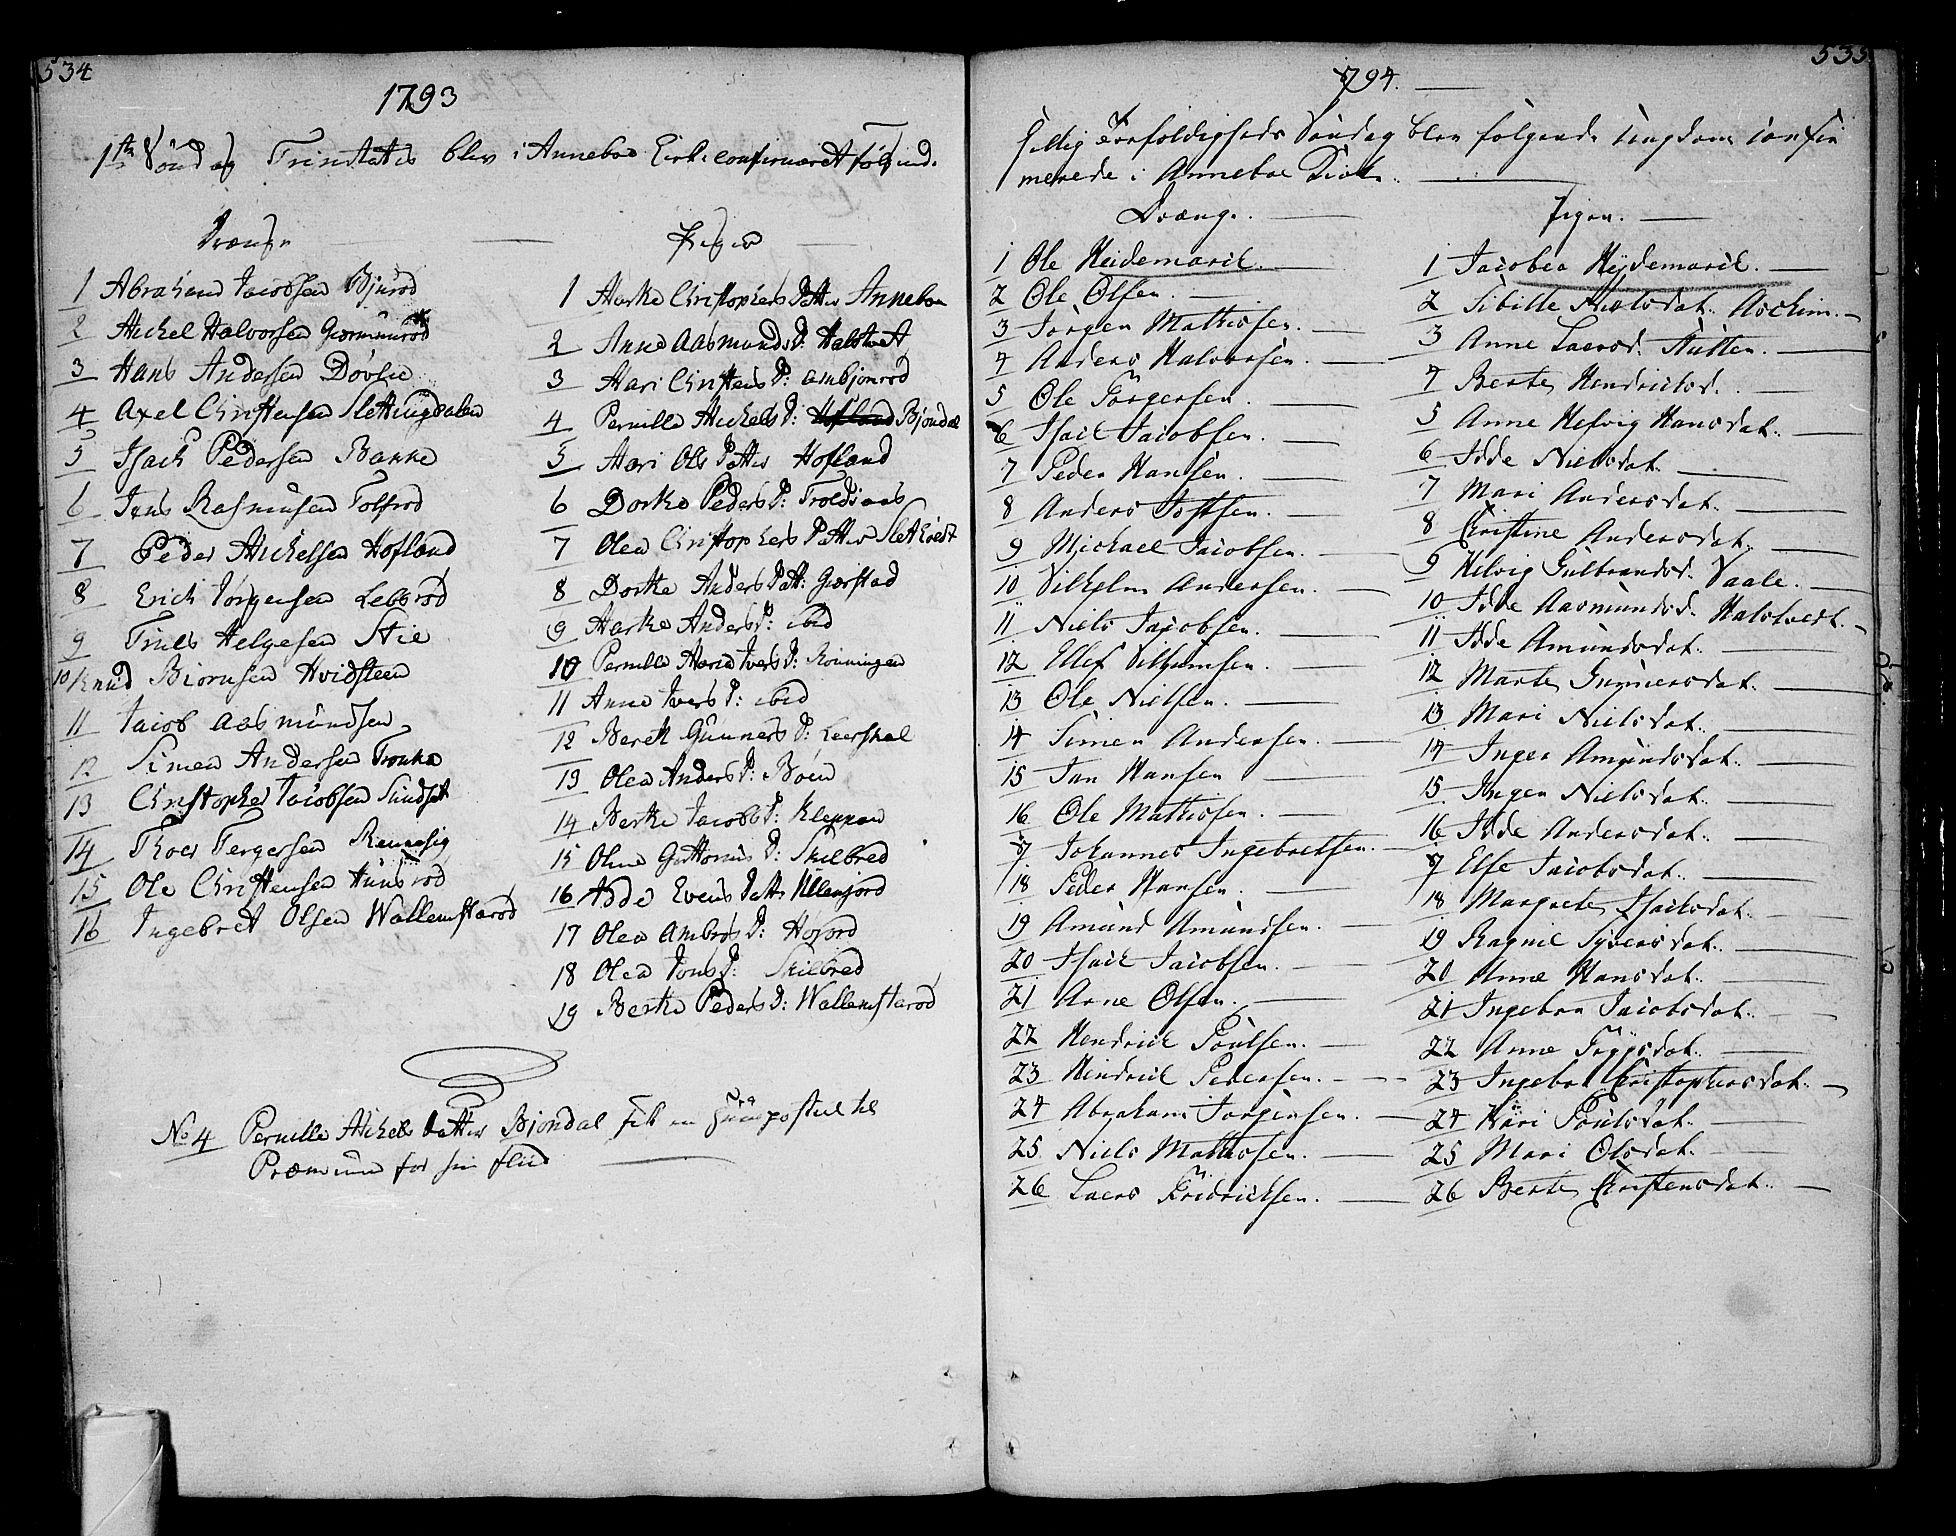 534
1793
1ste Söndag Trinitatis blev i Anneboe Kirke confirmeret følgende
Drenge
1 Abraham Jacobsen Bjuröd
2 Mickel Halvorsen Gormunröd
3 Hans Andersen Dövlie
4 Axel Christensen Slettingdalen
5 Isach Pedersen Bakke
6 Jens Rasmusen Tolfsröd
7 Peder Mickelsen Hofland
8 Erich Jörgensen Lebsröd
9 Truls Helgesen Stie
10 Knud Biörnsen Hvidsteen
11 Jacob Aasmundsen
12 Simen Andersen Tronka
13 Christopher Jacobsen Sundset
14 Thoer Tergersen Rennesig
15 Ole Christensen Hunsröd
16 Ingebret Olsen Wallemsteröd
Piger
1 Marthe Christophers Datter Anneboe
2 Anne Aasmunds D: Halstvet
3 Mari Christens D: Ambjönröd
4 Pernille Mickels D: Hofland Bjöndal
5 Mari Ols Datter Hofland
6 Dorthe Peders D: Troldsaas
7 Olea Christophers Datter Sletholdt
8 Dorthe Anders Datt: Gierstad
9 Marthe Anders D: ibid
10 Pernille Marie Ivers D: Rönningen
11 Anne Ivers D: ibid
12 Bereth Gunners D: Leerskal
13 Olea Anders D: Böen
14 Berthe Jacobs D: Kleppan
15 Olina Guttorms D: Skilbred
16 Adde Evens Datter Ullenjord
17 Olea Ambrös D: Höjord
18 Olea Jons D: Skilbred
19 Berthe Peders D: Wallemsteröd
No 4 Pernille Mickels Datter Bjöndal fik en Huuspostil til
Præmium for sin Flid
535
1794.
hellig Trefoldigheds Söndag blev følgende Ungdom confir
merede i Anneboe Kirke.
Drenge.
1 Ole Heidemarck.
2 Ole Olsen.
3 Jörgen Mathisen.
4 Anders Halvorsen.
5 Ole Jörgensen.
6 Isac Jacobsen.
7 Peder Hansen.
8 Anders Jostsen.
9 Michael Jacobsen.
10 Vilhelm Andersen.
11 Niels Jacobsen.
12 Ellef Vilhumsen.
13 Ole Nielsen.
14 Simen Andersen.
15 Jan Hansen
16 Ole Mathisen.
17 Johannes Ingebretsen.
18 Peder Hansen.
19 Amund Amundsen.
20 Isac Jacobsen.
21 Arne Olsen.
22 Hendrick Poulsen.
23 Hindrick Pedersen.
24 Abraham Jorgensen.
25 Niels Mathisen.
26 Laers Fridricksen.
Pigen.
1 Jacobea Heydemarck.
2 Sibille Nielsdat. Aschim.
3 Anne Laersd. Hütten.
4 Berte Hendricksd.
5 Anne Hefvig Hansdat.
6 Idde Nielsdat.
7 Mari Andersdat.
8 Christine Andersdat.
9 Helvig Gulbrandsd. Vaale.
10 Idde Aasmundsd. Halstvedt.
11 Idde Amundsdat.
12 Marte Gunnersdat.
13 Mari Nielsdat.
14 Inger Amundsdat.
15 Inger Nielsdat.
16 Idde Andersdat.
17 Else Jacobsdat.
18 Margrete Isacksdat.
19 Ragnil Syversdat.
20 Anne Hansdat.
21 Ingebor Jacobsdat.
22 Anne
23 Ingebor Christophersdat.
24 Kari Poulsdat.
25 Mari Olsdat.
26 Berte Christensdat.